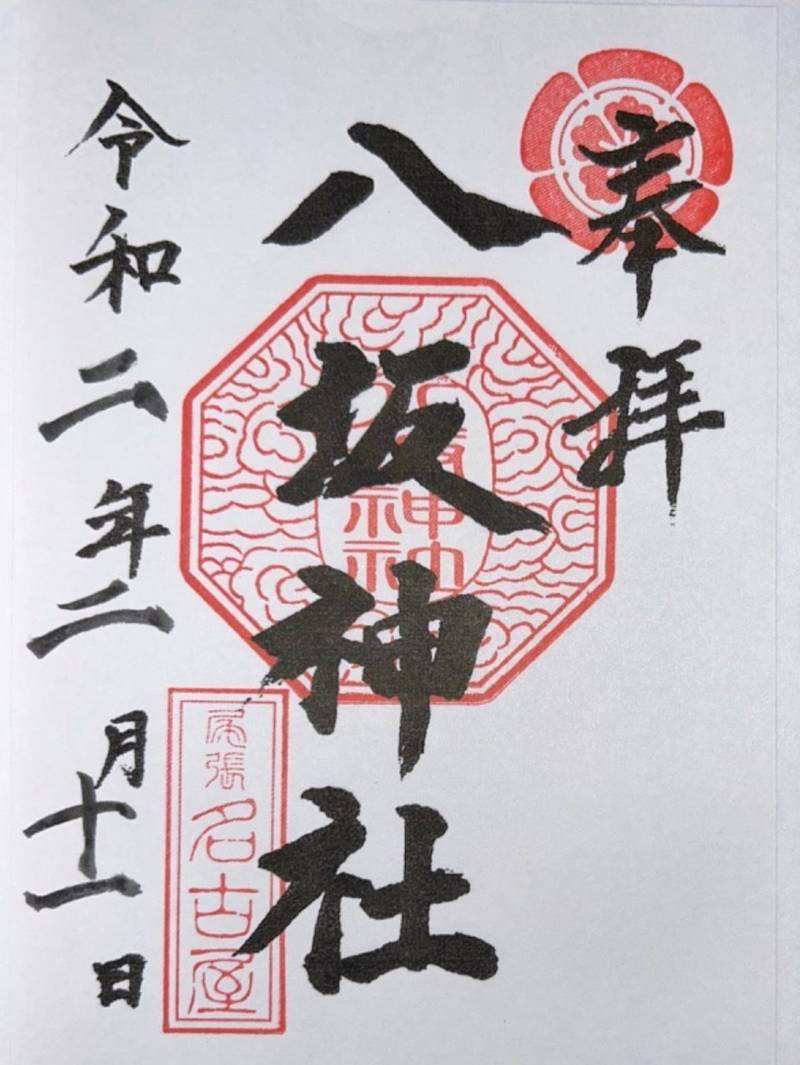 奉拝
八坂神社
尾張
名古屋
令和二年二月十一日